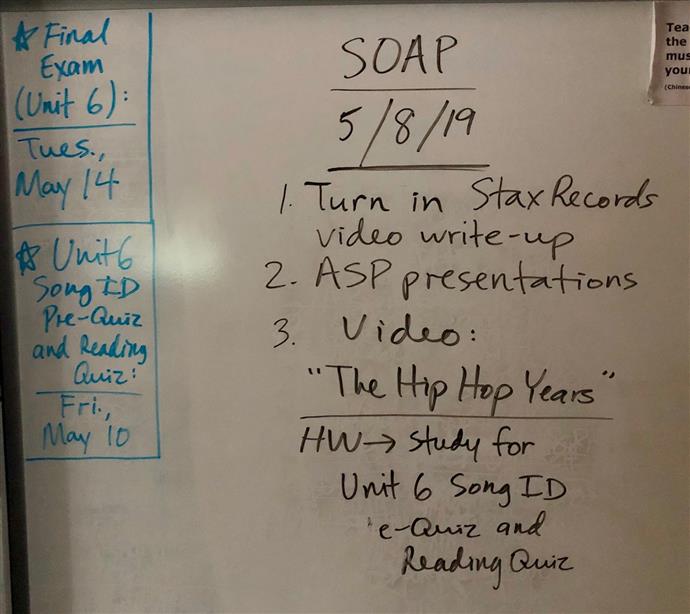 ☆ Final
Exam
(Unit 6):
Tues.,
May 14
☆ Unit 6
Song ID
Pre-Quiz
and Reading
Quiz:
Fri.,
May 10
SOAP
5/8/19
1. Turn in Stax Records
video write-up
2. ASP presentations
3. Video:
"The Hip Hop Years"
HW → Study for
Unit 6 Song ID
e-Quiz and
Reading Quiz
Tea
the
mus
you
(Chines